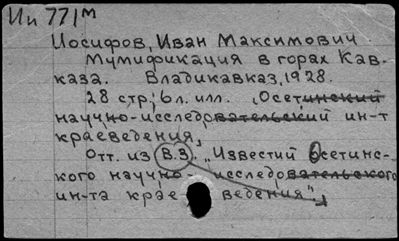 Ии 771м
Иосифов, Иван Максимович
Мумификация в горах Кав-
каза. Владикавказ, 1928.
28 стр; 6 л. илл. (Осетинский
научно-исследовательский ин-т
краеведения,
Отт. из В.3. „Известий Осетинс-
кого научно- исследовательского
ин-та крае ведения",